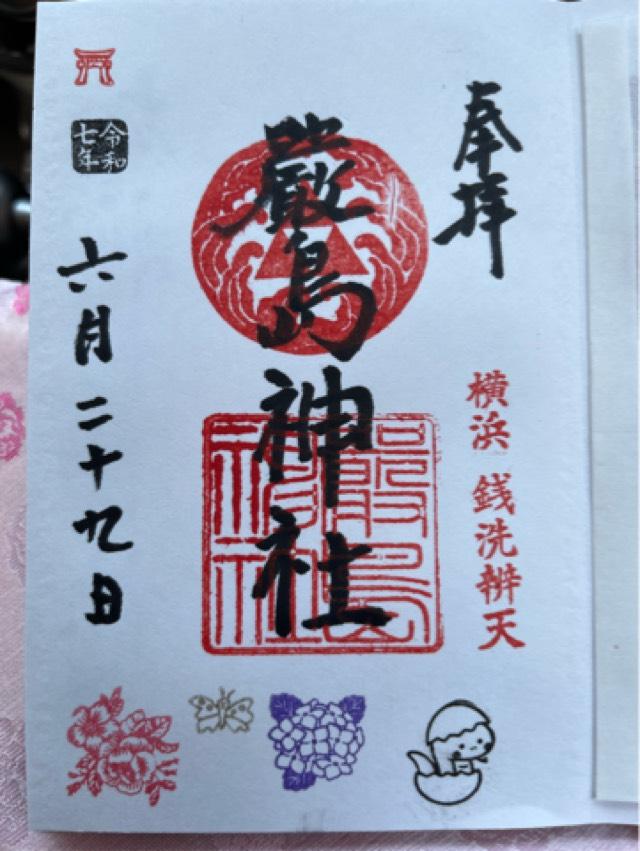 奉拝
横浜 銭洗辨天
厳島神社
嚴島
神社
令和
七年
六月二十九日